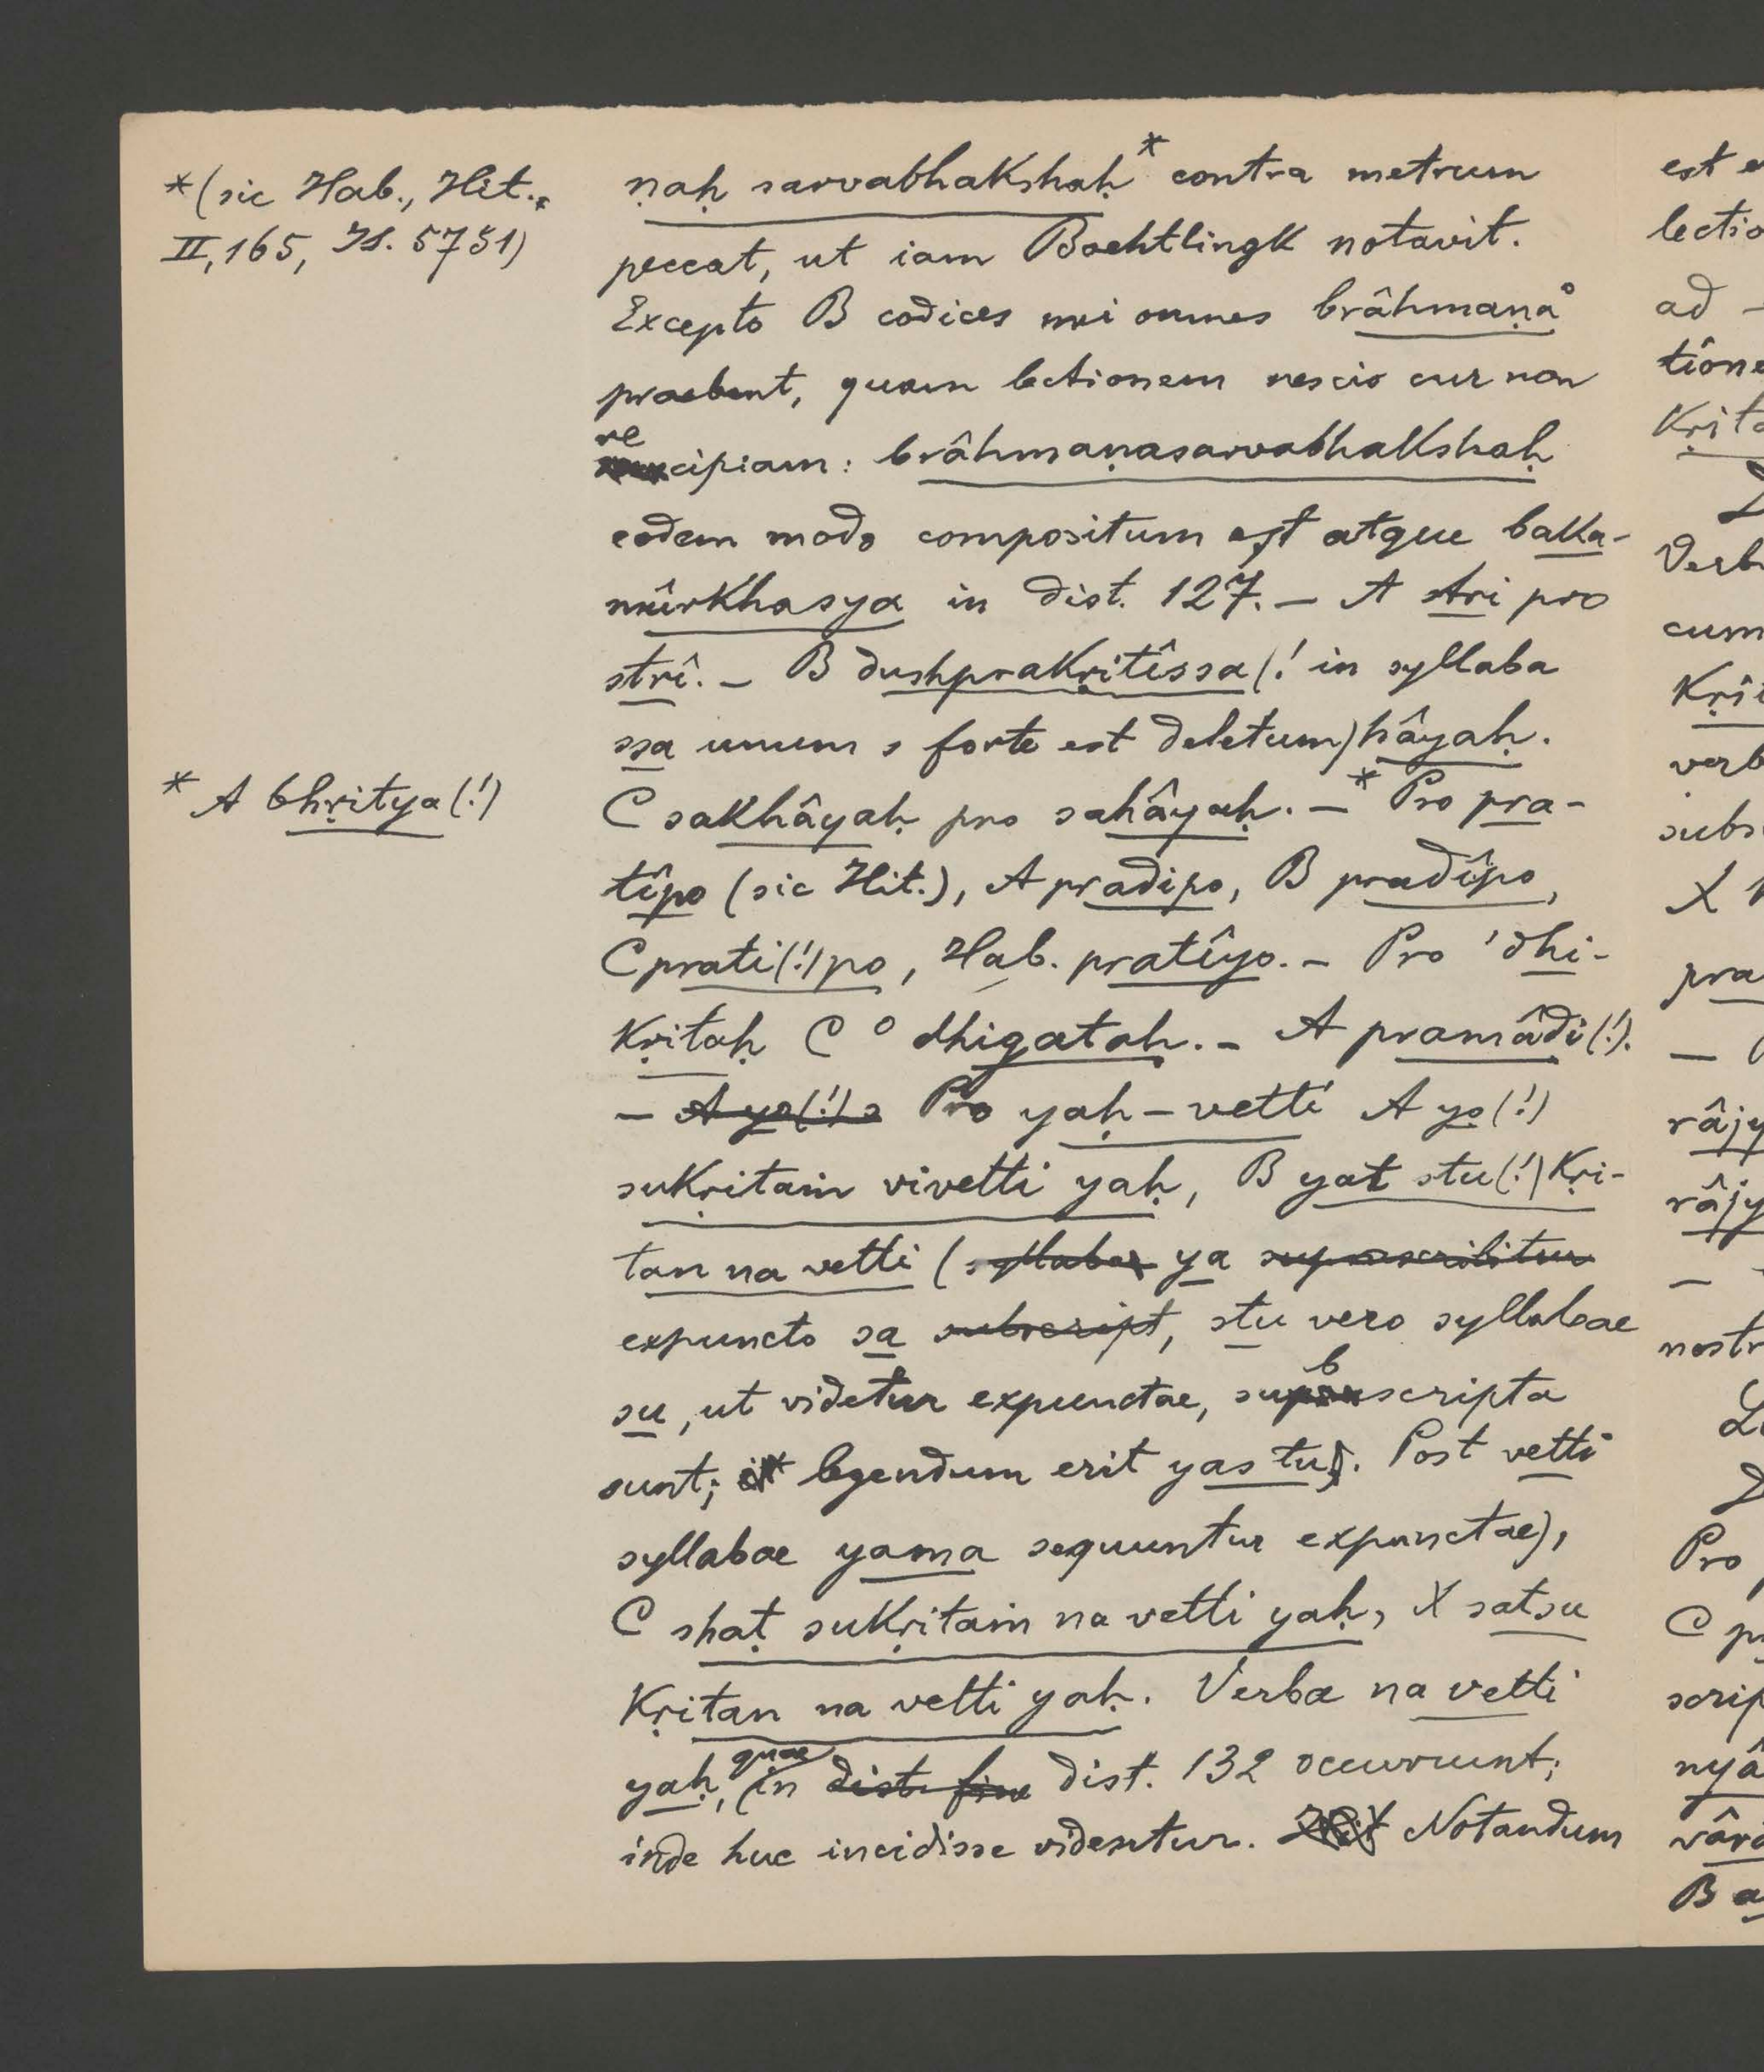 *(sic Hab., Hit.,
II, 165, IS. 5751)
ṇaḥ sarvabhakshaḥ* contra metrum
peccat, ut iam Boehtlingk notavit.
Excepto B codices mei omnes brâhmaṇa°
praebent, quam lectionem nescio cur non
recipiam: brâhmaṇasarvabhakshaḥ
eodem modo compositum est atque baka-
mûrkhasya in dist. 127. – A stri pro
strî. – B dushprakṛitîssa(! in syllaba
ssa unum s forte est deletum)hâyaḥ.
* A bhṛitya(!)
C sakhâyaḥ pro sahâyaḥ. –* Pro pra-
tîpo (sic Hit.), A pradipo, B pradîpo,
C prati(!)po, Hab. pratîyo. – Pro 'dhi-
kṛitaḥ C °dhigataḥ. – A pramâdi(!).
– A yo(!) s Pro yaḥ – vetti A yo(!)
sukṛitaṁ vivetti yaḥ, B yat stu(!)kṛi-
tan na vetti (syllaba ya superscribitur
expuncto sa subscript, stu vero syllabae
su, ut videtur expunctae, subscripta
sunt; legendum erit yas tu). Post vetti
syllabae yama sequuntur expunctae),
C shaṭ sukṛitaṁ na vetti yaḥ, X satsu
kṛitan na vetti yaḥ. Verba na vetti
yaḥ, quae in dist. fine dist. 132 occurrunt;
inde huc incidisse videntur. Hit Notandum
est
lectio
ad –
tione
kṛita
Verb
cum
kṛit
verb
subs
X
pra
–
râjy
râjy
–
nostr
Pro
C p
scrip
nyâ
vâra
B a